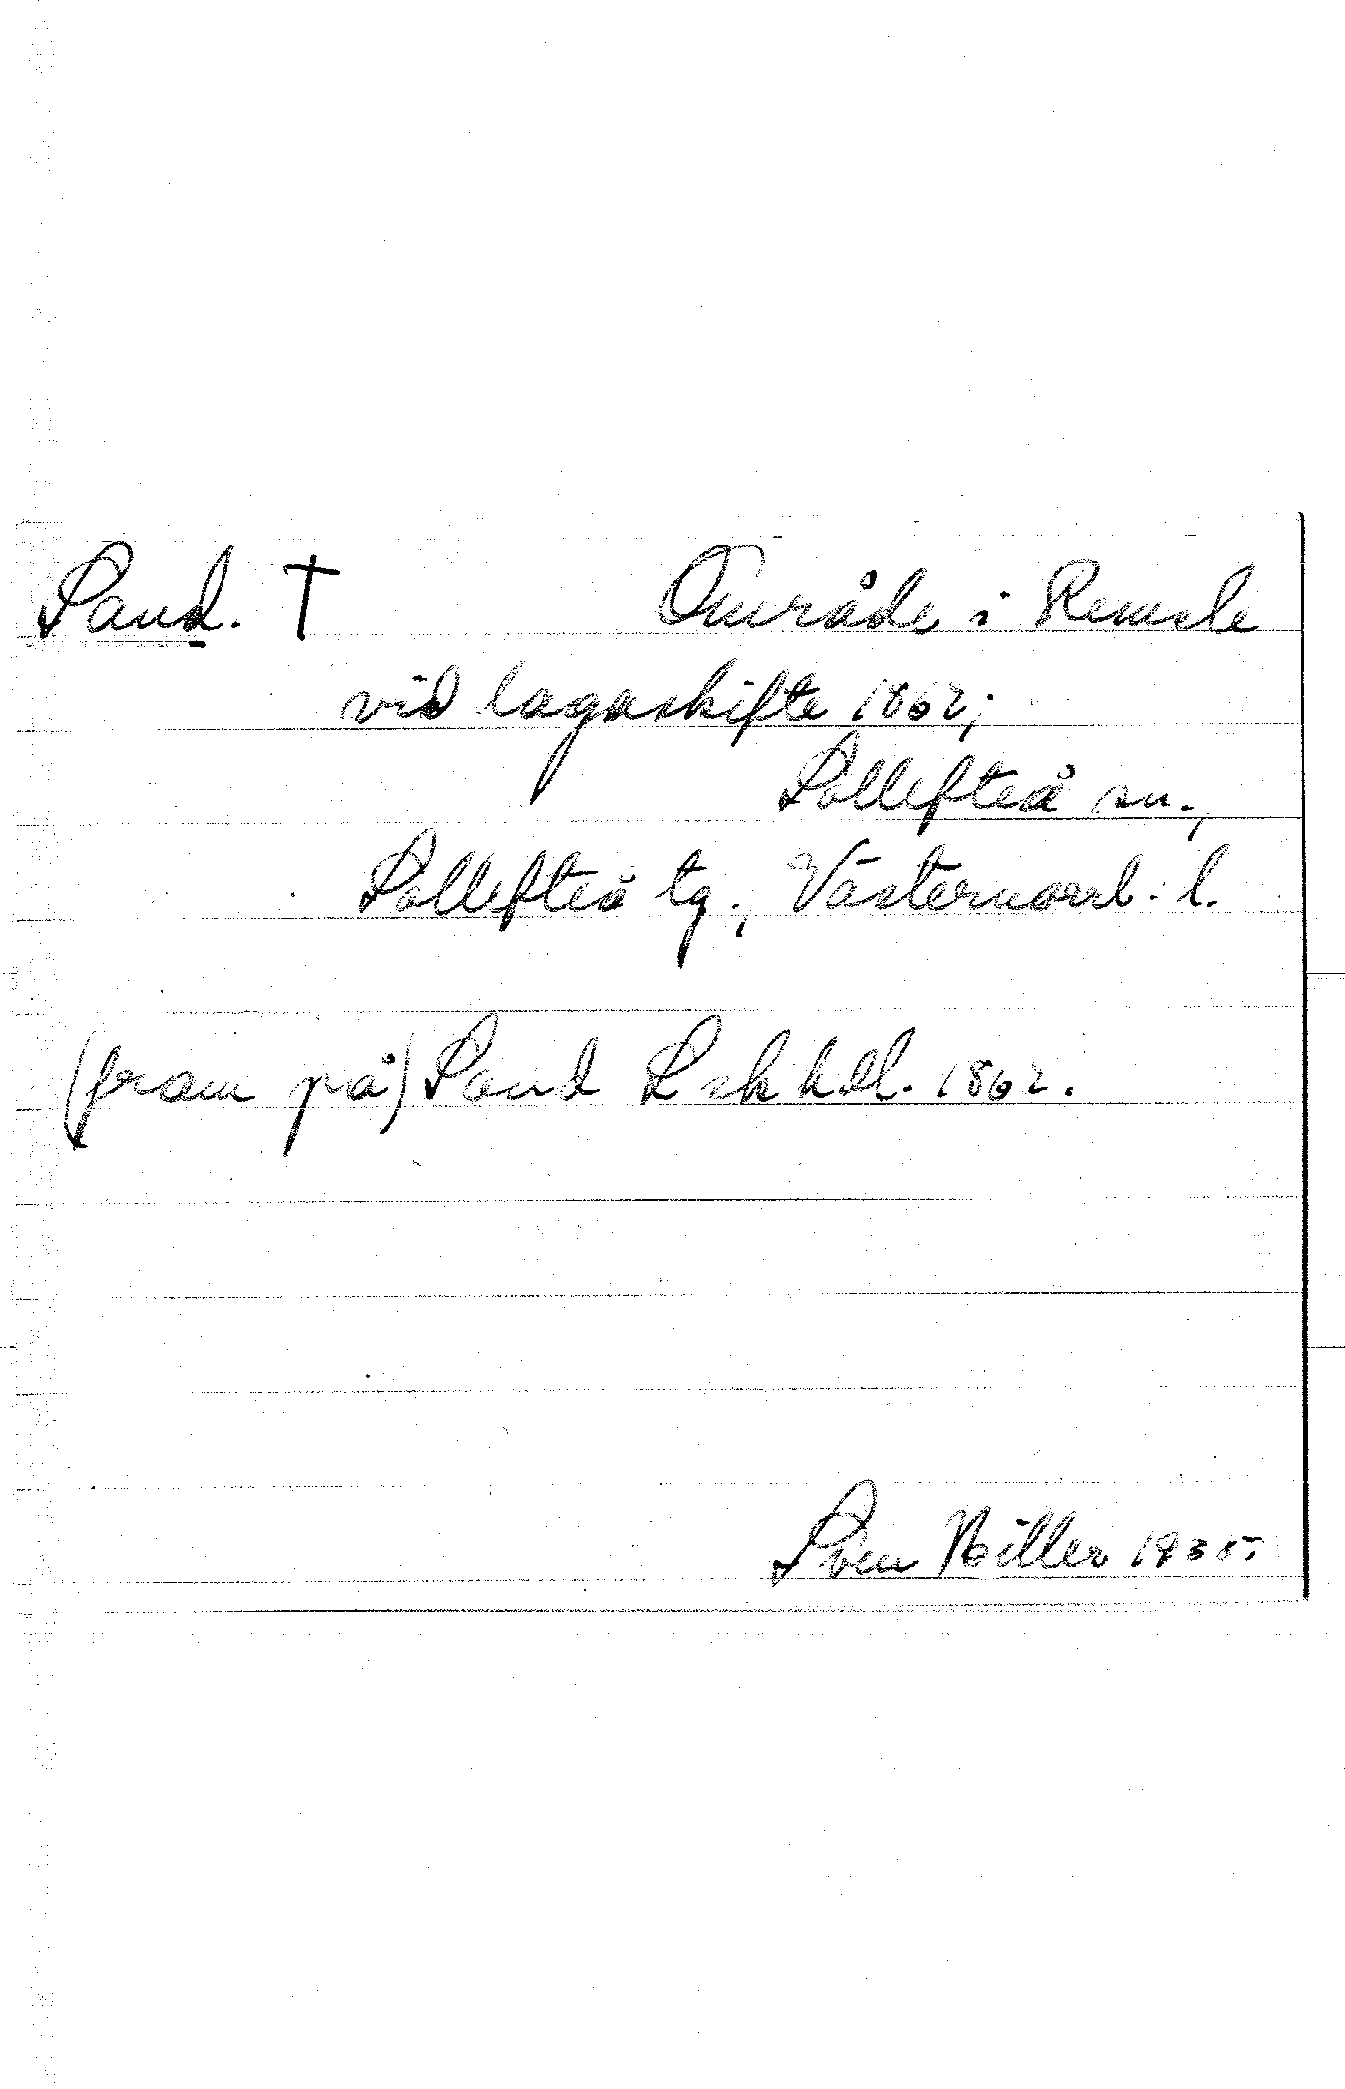 Sand. † Område i Remsle
vid lagaskifte 1862;
Sollefteå sn.,
Sollefteå tg., Västernorrl. l.
(fram på) Sand Lskhdl. 1862.
Sven Hiller 1935.